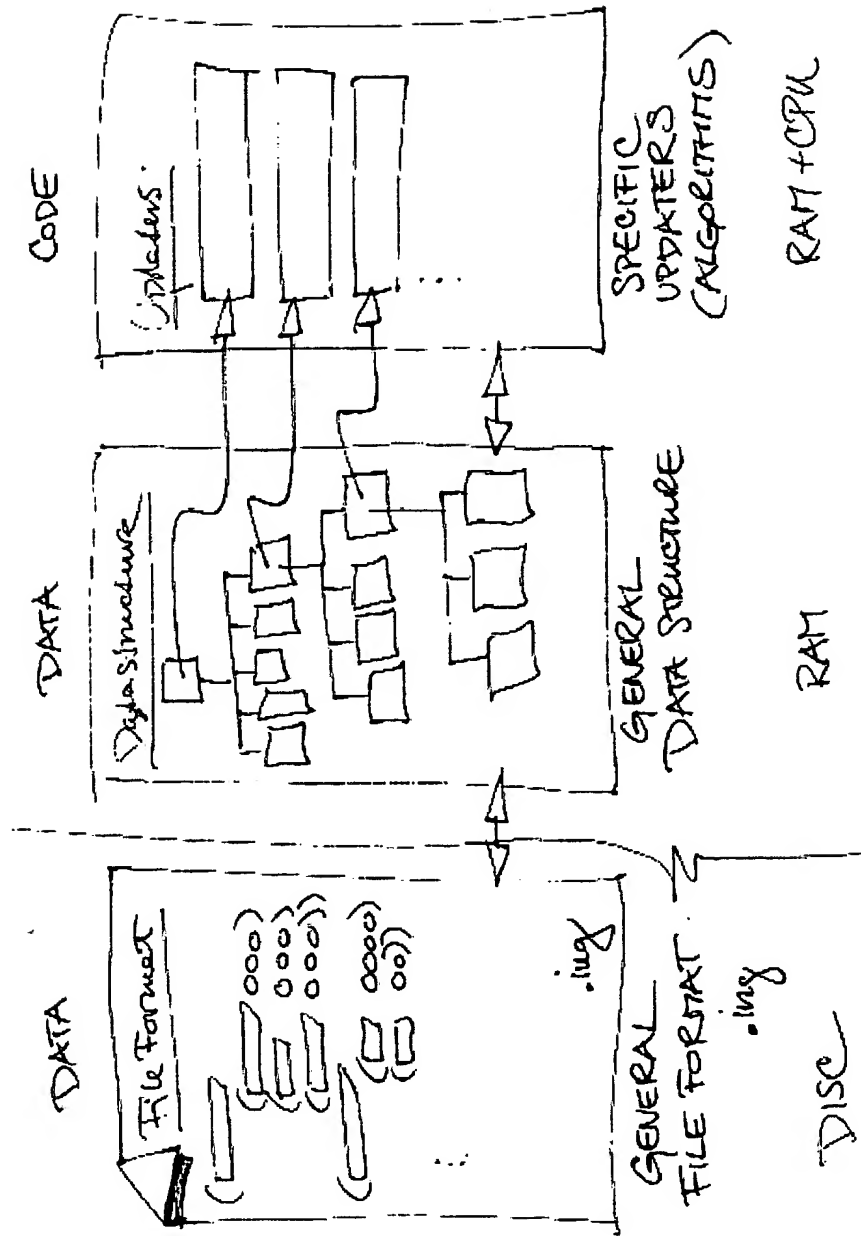 DATA
File Format
( ooo)
( ooo)
( ooo))
(
( oooo)
( oo))
...
.ing
GENERAL
FILE FORMAT
.ing
DISC
DATA
Data structure
GENERAL
DATA STRUCTURE
RAM
CODE
Updaters
...
SPECIFIC
UPDATERS
(ALGORITHMS)
RAM + CPU